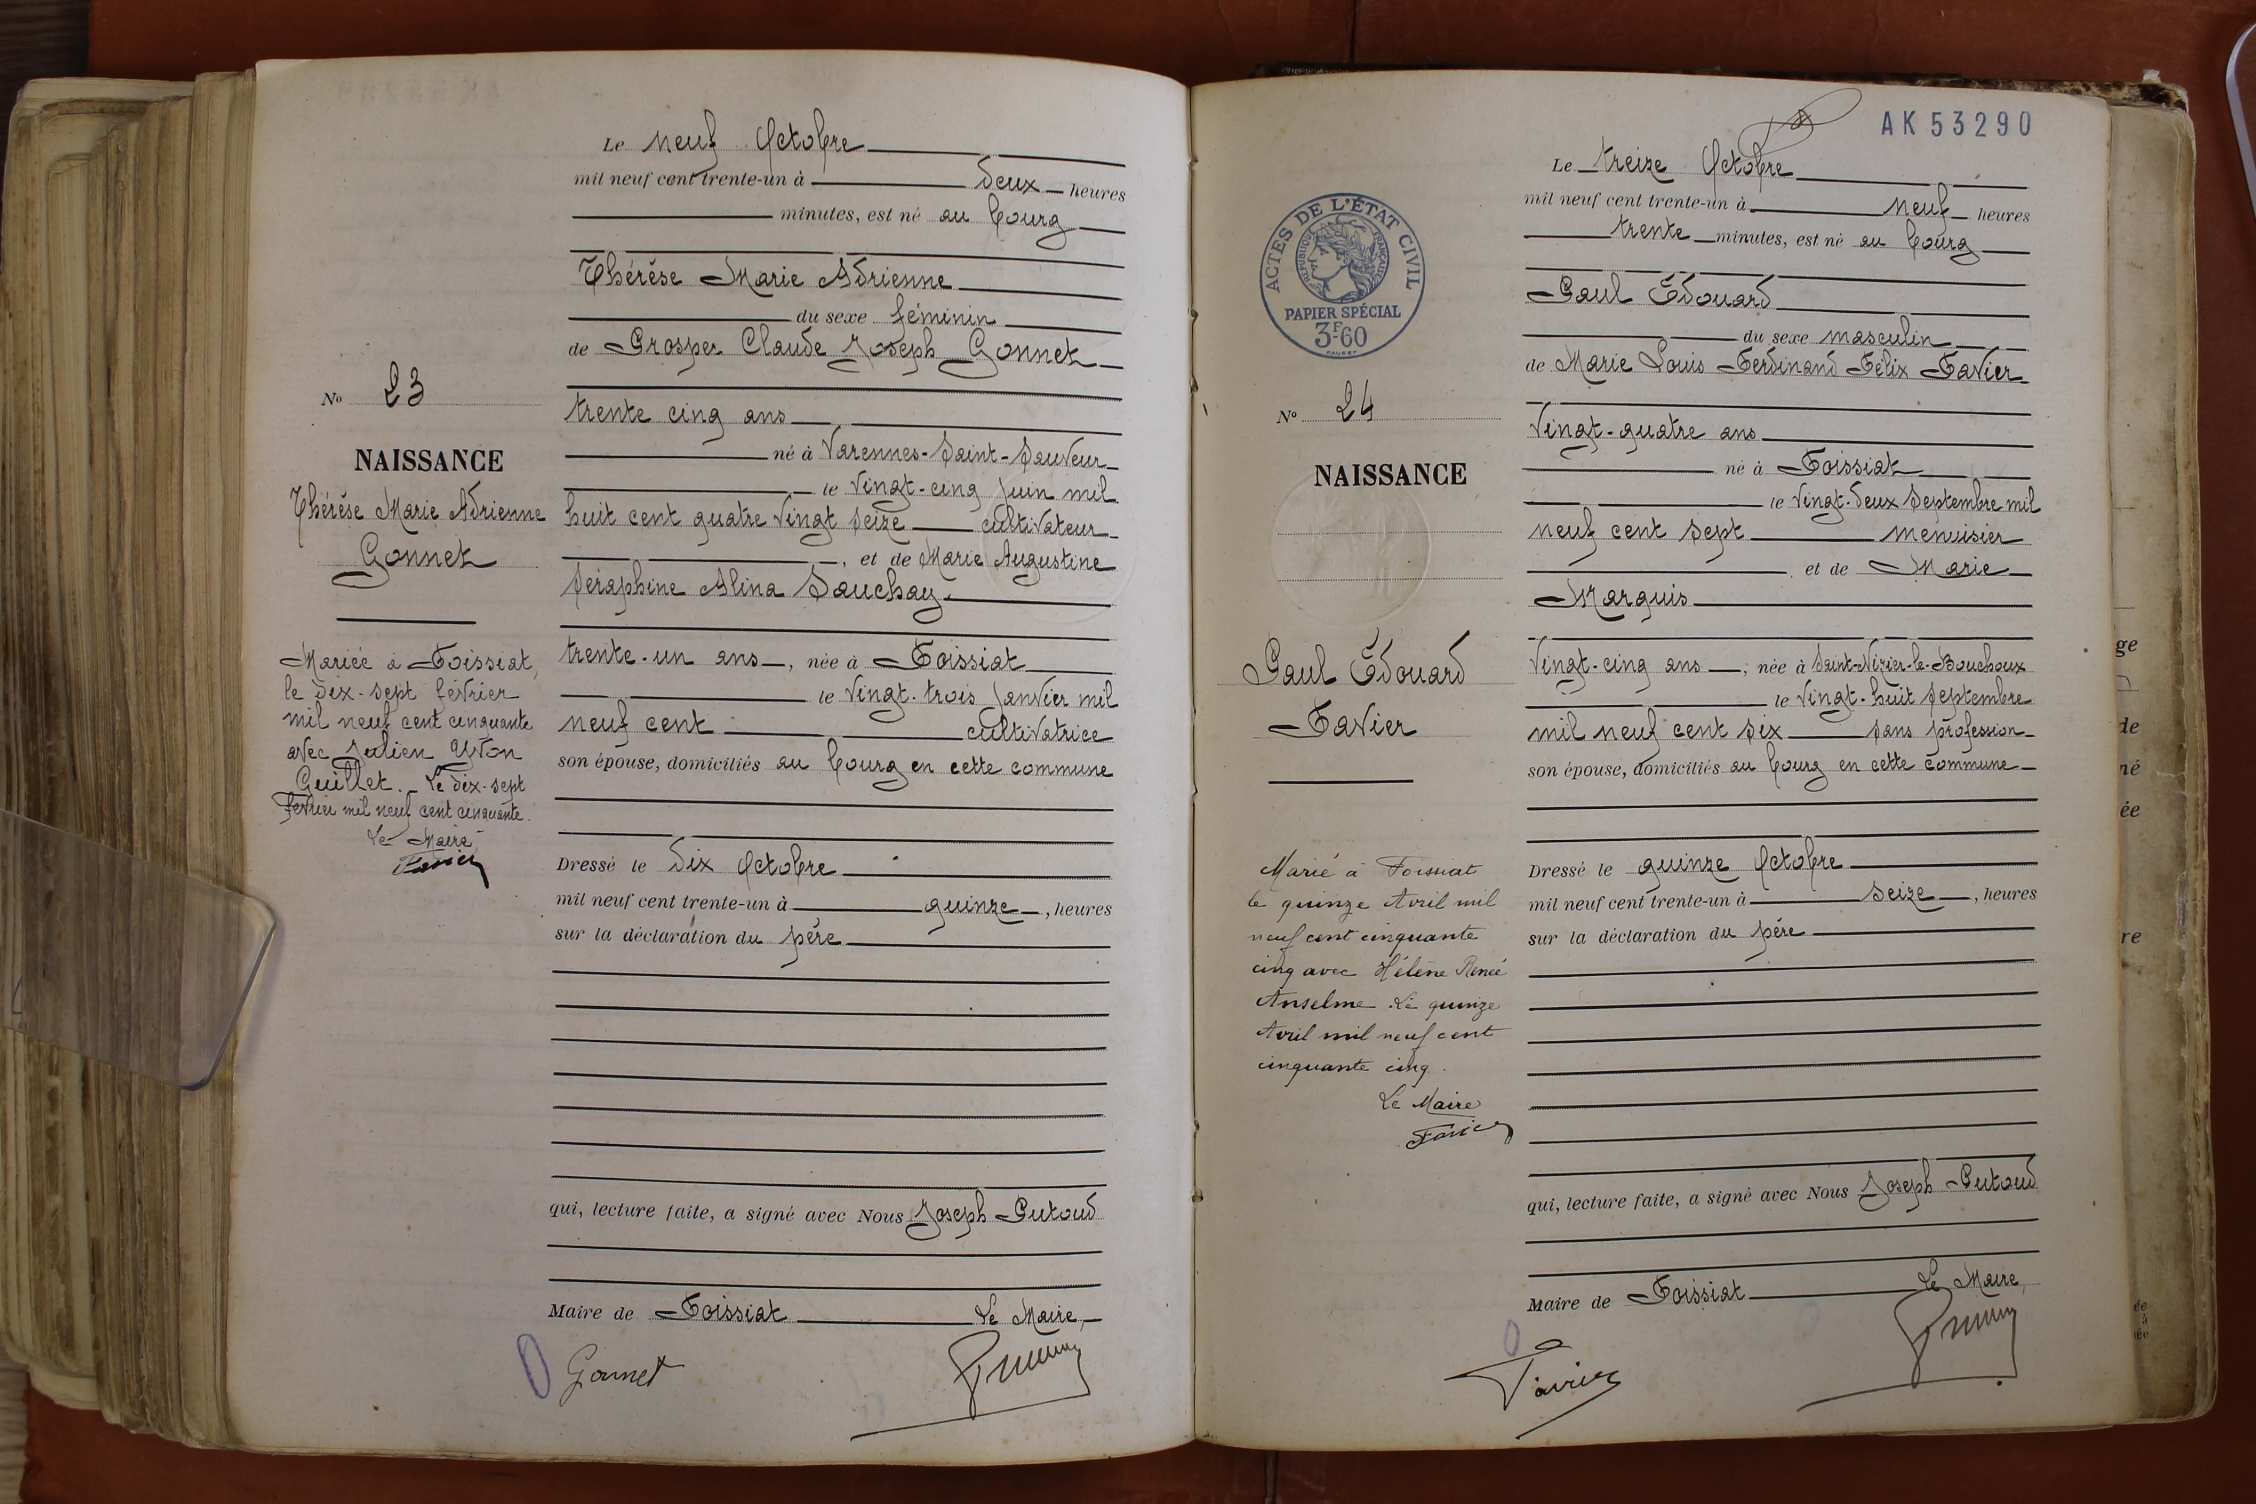 Le neuf Octobre
mil neuf cent trente-un à deux heures
minutes, est né au bourg
Thérèse Marie Adrienne
du sexe féminin
de Prosper Claude Joseph Gonnet
trente cinq ans
né à Varennes-Saint-Sauveur
le vingt-cinq Juin mil
huit cent quatre vingt seize cultivateur
, et de Marie Augustine
Séraphine Alina Sauchay
trente-un ans, née à Foissiat
le vingt-trois Janvier mil
neuf cent cultivatrice
son épouse, domiciliés au bourg en cette commune
Dressé le dix Octobre
mil neuf cent trente-un à quinze, heures
sur la déclaration du père
qui, lecture faite, a signé avec Nous Joseph Putoud
Maire de Foissiat Le Maire,
Gonnet
No 23
NAISSANCE
Thérèse Marie Adrienne
Gonnet
Mariée à Foissiat,
le dix-sept février
mil neuf cent cinquante
avec Julien Yvon
Guillet. Le dix-sept
février mil neuf cent cinquante.
Le Maire
Favier
AK53290
Le treize Octobre
mil neuf cent trente-un à neuf heures
trente minutes, est né au bourg
Paul Edouard
du sexe masculin
de Marie Louis Ferdinand Félix Favier
vingt-quatre ans
né à Foissiat
le vingt-deux Septembre mil
neuf cent sept menuisier
et de Marie
Marquis
vingt-cinq ans, née à Saint-Nizier-le-Bouchoux
le vingt-huit Septembre
mil neuf cent six sans profession
son épouse, domiciliés au bourg en cette commune
Dressé le quinze Octobre
mil neuf cent trente-un à seize, heures
sur la déclaration du père
qui, lecture faite, a signé avec Nous Joseph Putoud
Maire de Foissiat Le Maire,
Favier
ACTES DE L'ÉTAT CIVIL
RÉPUBLIQUE FRANÇAISE
PAPIER SPÉCIAL
3F60
No 24
NAISSANCE
Paul Edouard
Favier
Marié à Foissiat
le quinze Avril mil
neuf cent cinquante
cinq avec Hélène Renée
Anselme. Le quinze
Avril mil neuf cent
cinquante cinq.
Le Maire
Favier